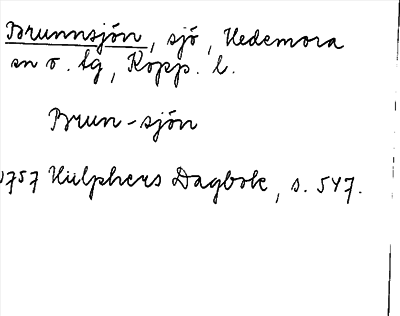 Brunnsjön, sjö, Hedemora
sn o. tg, Kopp. l.
Brun-sjön
1757 Hülphers Dagbok, s. 547.